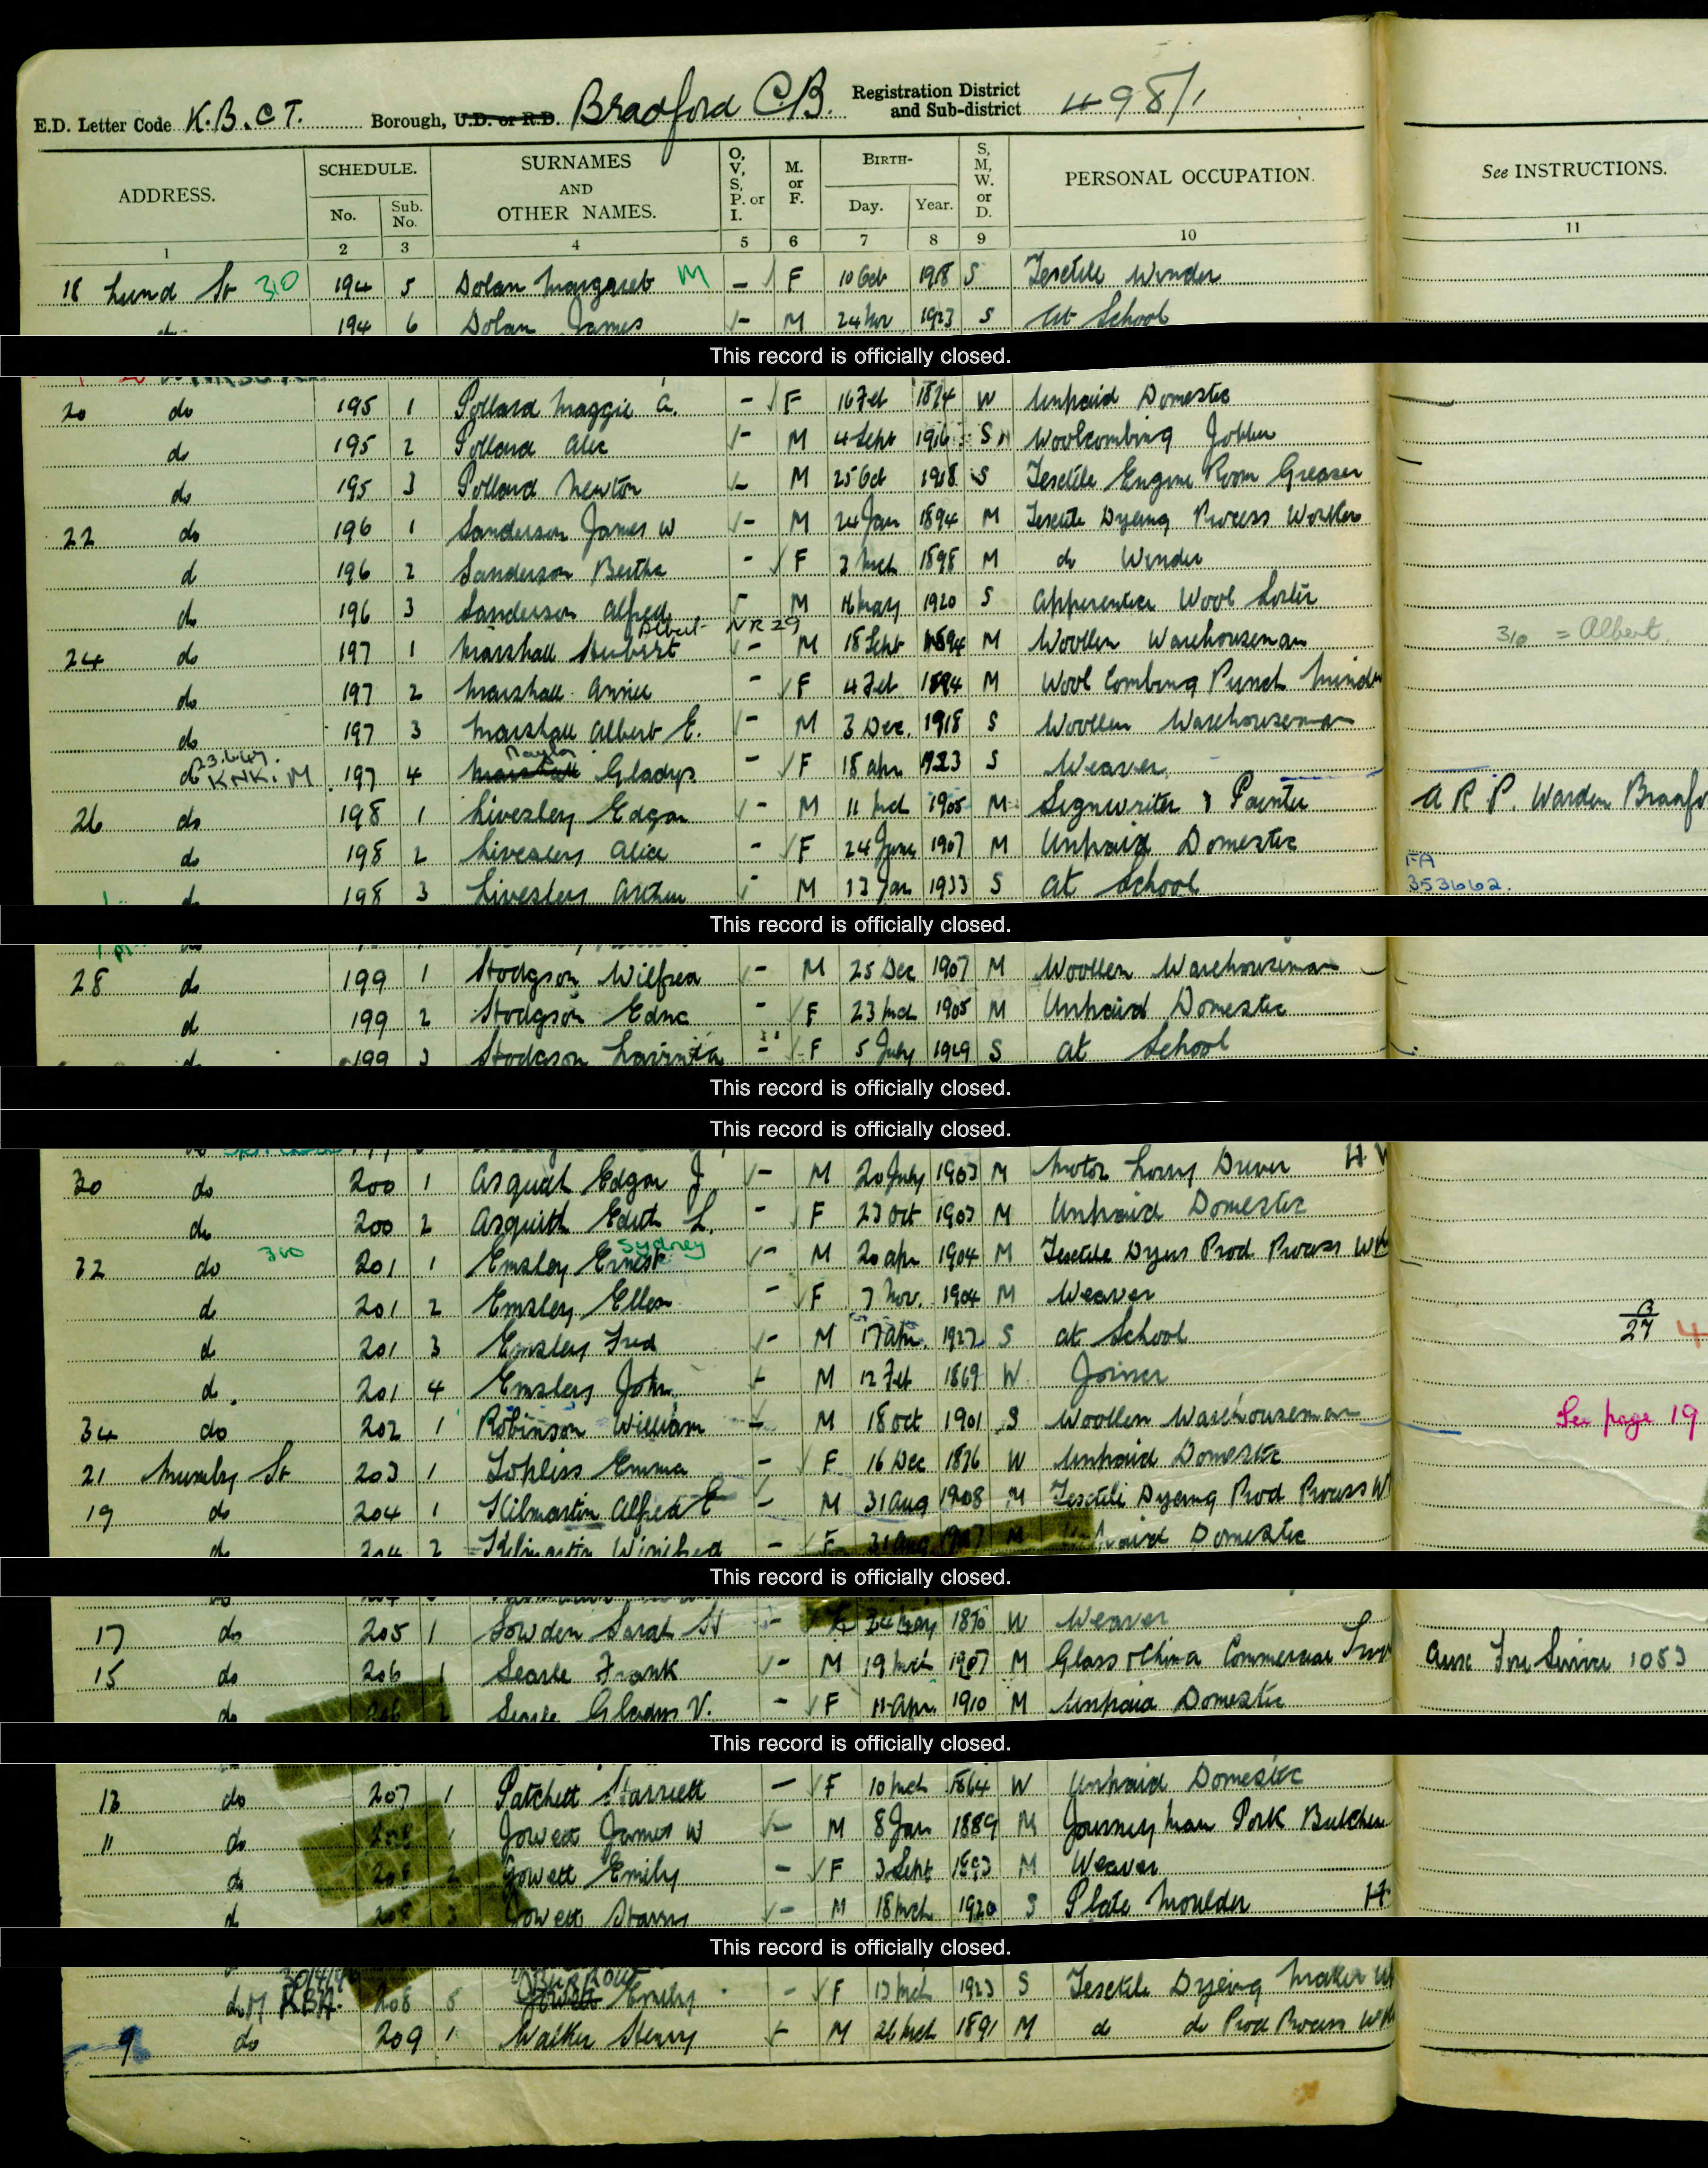 E.D. Letter Code K.B.C T. Borough, U.D. or R.D. Bradford C.B. Registration District and Sub-district 498/1
ADDRESS. SCHEDULE. No. Sub. No. SURNAMES AND OTHER NAMES. O, V, S, P. or I. M. or F. BIRTH- Day. Year. S, M, W. or D. PERSONAL OCCUPATION. See INSTRUCTIONS.
1 2 3 4 5 6 7 8 9 10 11
18 Lund St 310 194 5 Dolan Margaret M - F 10 Oct 1918 S Textile Winder
do 194 6 Dolan James - M 24 Nov 1923 S At School
This record is officially closed.
20 do 195 1 Pollard Maggie A. - F 16 Feb 1874 W Unpaid Domestic
do 195 2 Pollard Alec - M 4 Sept 1916 S Woolcombing Jobber
do 195 3 Pollard Newton - M 25 Oct 1918 S Textile Engine Room Greaser
22 do 196 1 Sanderson James W - M 24 Jan 1894 M Textile Dyeing Process Worker
d 196 2 Sanderson Bertha - F 2 Mch 1898 M do Winder
do 196 3 Sanderson Alfred - M 16 May 1920 S Apprentice Wool Sorter
Albert NR 29
24 do 197 1 Marshall Hubert - M 18 Sept 1894 M Woollen Warehouseman 310 = Albert
do 197 2 Marshall Annie - F 4 Feb 1894 M Wool Combing Punch Minder
do 197 3 Marshall Albert E. - M 3 Dec. 1918 S Woollen Warehouseman
do KNK. M 197 4 Marshall Naylor Gladys - F 18 Apr 1923 S Weaver
26 do 198 1 Livesley Edgar - M 11 Mch 1905 M Signwriter & Painter A R P. Warden Bradfo
do 198 2 Livesley Alice - F 24 June 1907 M Unpaid Domestic
FA
d 198 3 Livesley Arthur M 13 Jan 1933 S At School 353662.
This record is officially closed.
28 do 199 1 Hodgson Wilfred - M 25 Dec 1907 M Woollen Warehouseman
d 199 2 Hodgson Edna - F 23 Mch 1905 M Unpaid Domestic
d 199 3 Hodgson Lavinia - F 5 July 1929 S At School
This record is officially closed.
This record is officially closed.
30 do 200 1 Asquith Edgar J. - M 20 July 1903 M Motor Lorry Driver H
do 200 2 Asquith Edith L. - F 23 Oct 1903 M Unpaid Domestic
310 Sydney
32 do 201 1 Emsley Ernest - M 20 Apr 1904 M Textile Dyers Prod Process Wk
d 201 2 Emsley Ellen - F 7 Nov. 1904 M Weaver
d 201 3 Emsley Fred - M 17 Apr. 1927 S At School 27 4
d. 201 4 Emsley John - M 12 Feb 1869 W Joiner
34 do 202 1 Robinson William - M 18 Oct 1901 S Woollen Warehouseman See page 19
21 Mumby St 203 1 Emma - F 16 Dec 1876 W Unpaid Domestic
19 do 204 1 Kilmartin Alfred E - M 31 Aug 1908 M Textile Dyeing Prod Process W
do 204 2 Kilmartin Winifred - F 31 Aug 1907 M Unpaid Domestic
This record is officially closed.
17 do 205 1 Sowden Sarah H - F 24 May 1870 W Weaver
15 do 206 1 Searle Frank - M 19 Mch 1907 M Glass & China Commercial Trav Aux Fire Service 1053
do 206 2 Searle Gladys V. - F 11 Apr. 1910 M Unpaid Domestic
This record is officially closed.
13 do 207 1 Patchett Harriett - F 10 Mch 1864 W Unpaid Domestic
11 do 208 1 Jowett James W - M 8 Jan 1889 M Journeyman Pork Butcher
do 208 2 Jowett Emily - F 3 Sept 1893 M Weaver
d 208 3 Jowett Harry - M 18 Mch 1920 S Plate Moulder H
This record is officially closed.
do M KBA. 208 5 Jowett Emily - F 13 Mch 1923 S Textile Dyeing Maker Up
9 do 209 1 Walker Henry - M 26 Mch 1891 M do do Prod Process Wk